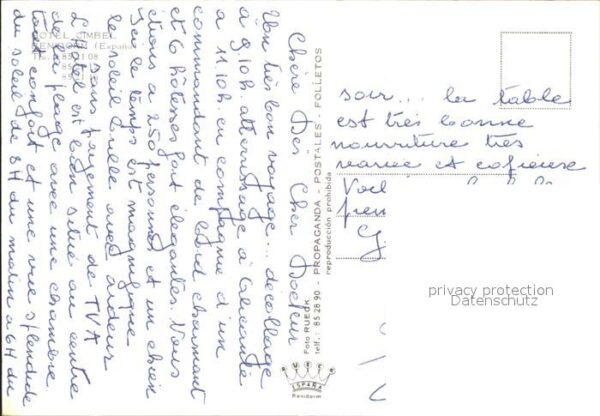 HOTEL CIMBEL
BENIDORM (España)
Chère Dési Cher Docteur
Un très bon voyage... décollage
à 9.10h atterrissage à Alicante
à 11.10h en compagnie d'un
commandant de bord charmant
et 6 hôtesses fort élégantes. Nous
étions à 250 personnes et un
Ici le temps est magnifique
le soleil brille avec ardeur
sans payement de TVA
L'hôtel est bien situé au centre
de la plage avec une chambre
tout confort et une vue splendide
du soleil de 8H du matin à 6H du
soir... la table
est très bonne
nourriture très
variée et copieuse
Foto RUECK
telf.: 85 28 90 - PROPAGANDA - POSTALES - FOLLETOS
reproducción prohibida
ESPAÑA
Benidorm
privacy protection
Datenschutz